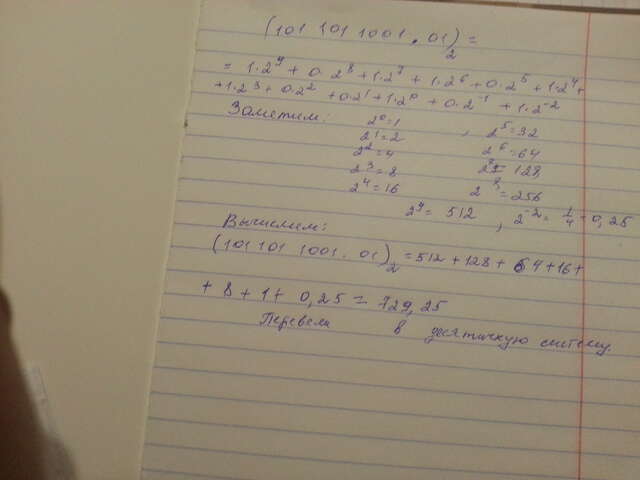 (101 101 1001.01)₂ =
= 1·2⁹ + 0·2⁸ + 1·2⁷ + 1·2⁶ + 0·2⁵ + 1·2⁴ +
+ 1·2³ + 0·2² + 0·2¹ + 1·2⁰ + 0·2⁻¹ + 1·2⁻²
Заметим: 2⁰=1 , 2⁵=32
2¹=2 2⁶=64
2²=4 2⁷= 128
2³=8 2⁸=256
2⁴=16
2⁹= 512 , 2⁻²= 1/4 = 0,25
Вычислим:
(101 101 1001.01)₂ = 512 + 128 + 64 + 16 +
+ 8 + 1 + 0,25 = 729,25
Перевели в десятичную систему.